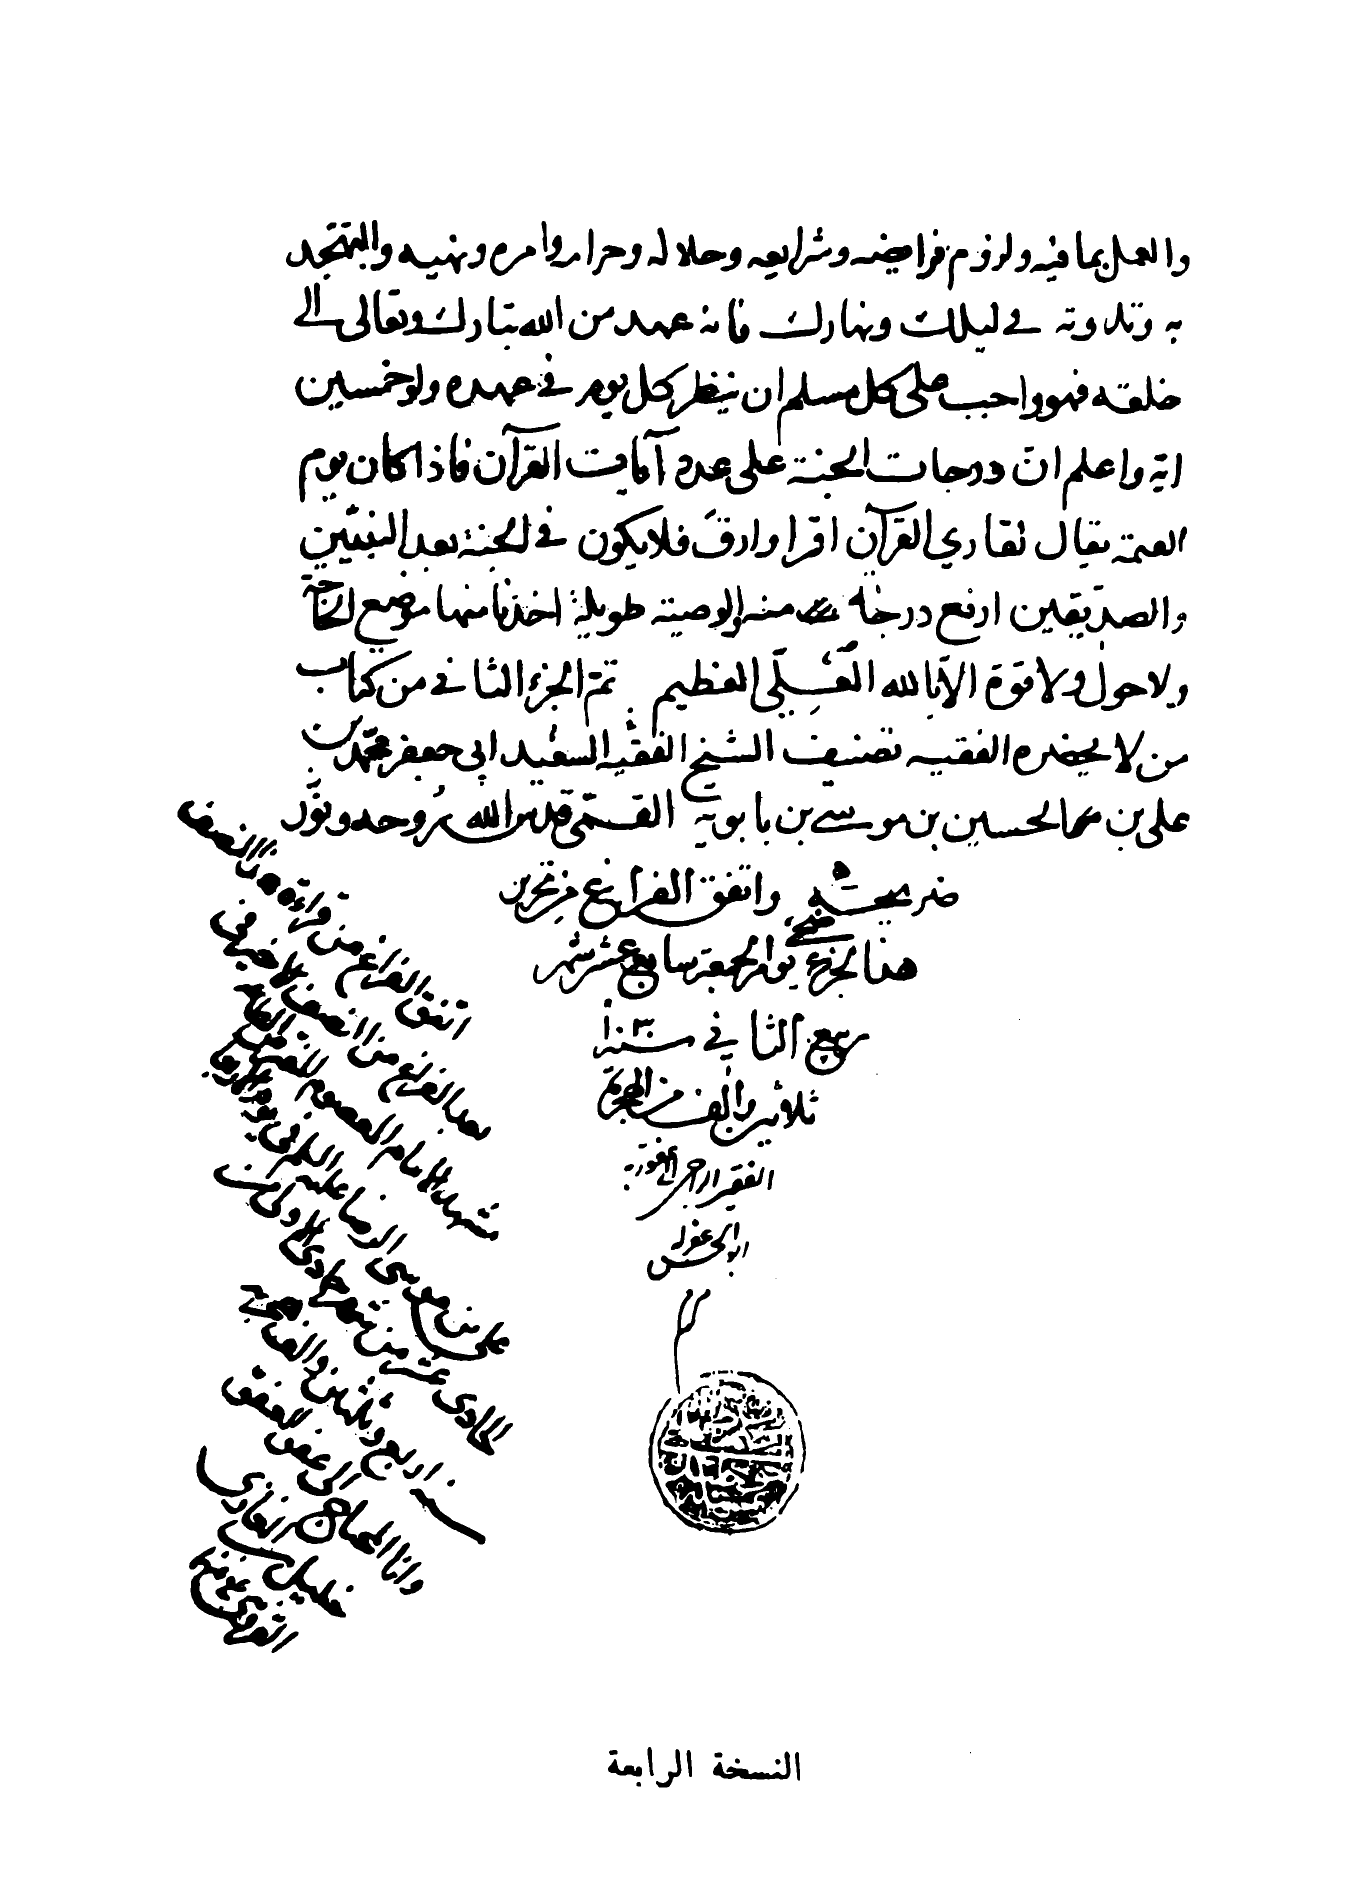 والعمل بما فيه ولزوم فرايضه وشرايعه وحلاله وحرامه وامره ونهيه والتهجد
به وتلاوته في ليلك ونهارك فانه عهد من الله تبارك وتعالى الى
خلقه فهو واجب على كل مسلم ان ينظر كل يوم في عهده ولو خمسين
اية واعلم ان درجات الجنة على عدد آيات القرآن فاذا كان يوم
القيمة يقال لقاري القرآن اقرا وارق فلا يكون في الجنة بعد النبيين
والصديقين ارفع درجة منه والوصية طويلة اخذنا منها موضع الحاجة
ولا حول ولا قوة الا بالله العلي العظيم تم الجزء الثاني من كتاب
من لا يحضره الفقيه تصنيف الشيخ الفقيه السعيد ابي جعفر محمد بن
علي بن الحسين بن موسى بن بابويه القمي قدس الله روحه ونور
ضريحه واتفق الفراغ من تحرير
هذا الجزء يوم الجمعة سابع عشر شهر
ربيع الثاني سنة ١٠٣٠
ثلاثين والف من الهجرة
الفقير الراجي الى عفو ربه
ابو الحسن عفي له
اتفق الفراغ من قراءة هذا النصف
بعد الفراغ من النصف الاخير في
مشهد الامام المعصوم
علي بن موسى الرضا عليه السلام في يوم الاربعا
الحادي عشر من شهر جمادى الاولى من
سنة اربع وثلثين والف هجرية
وانا المحتاج الى عفو
خليل بن الغازي
القزويني عفي عنه
النسخة الرابعة